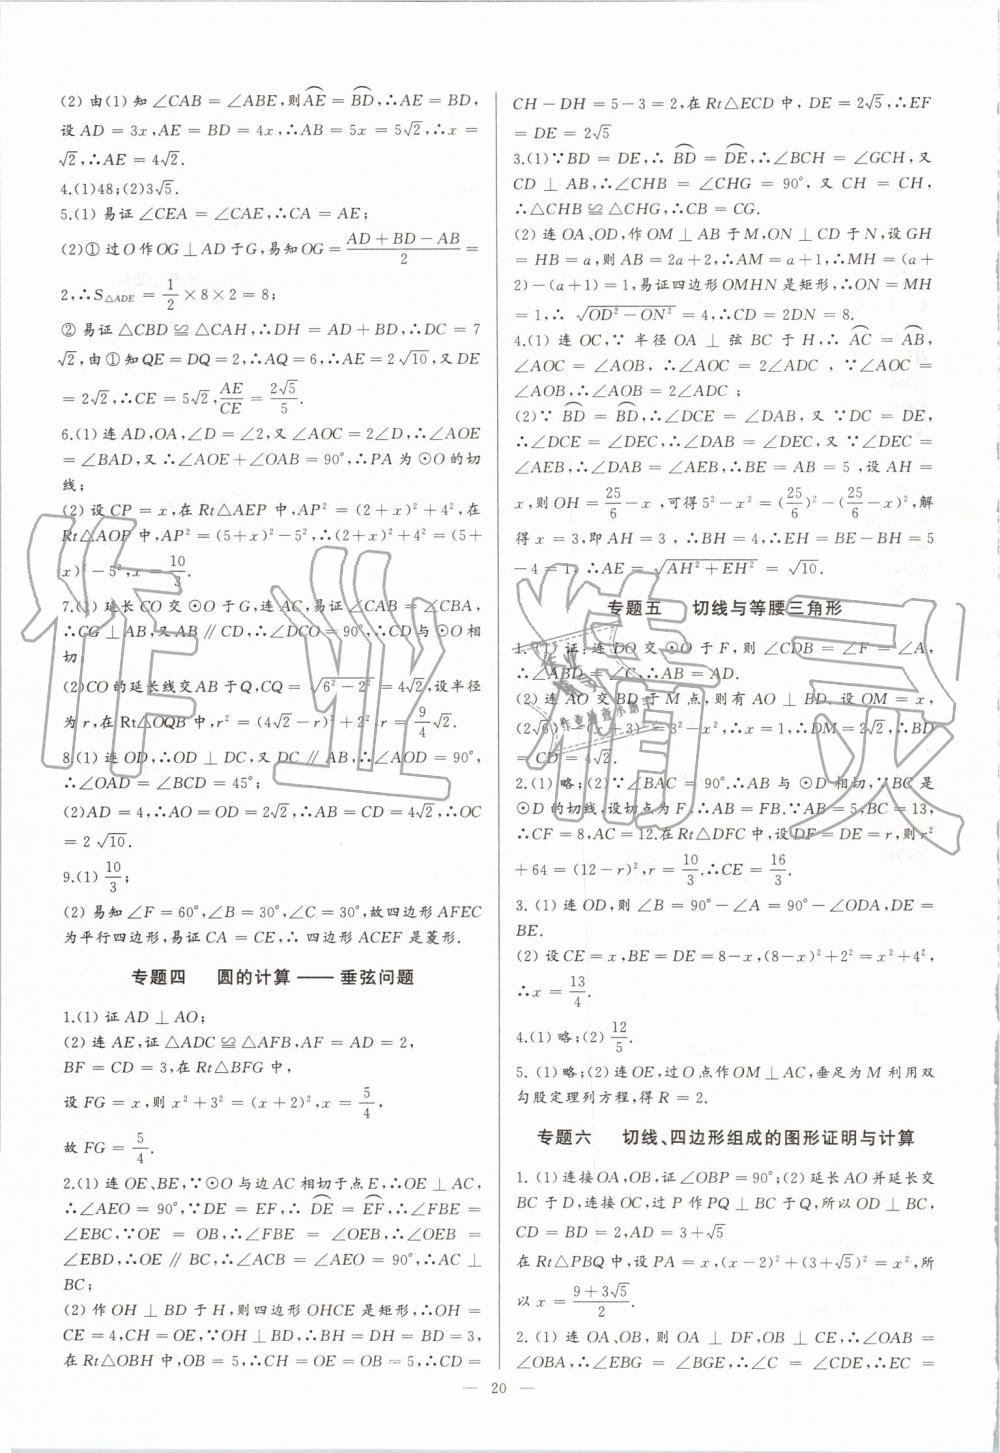 (2) 由(1)知∠CAB=∠ABE,则A͡E=B͡D,∴AE=BD,
设 AD=3x,AE=BD=4x,∴AB=5x=5√2,∴x=
√2,∴AE=4√2.
4.(1)48;(2)3√5.
5.(1) 易证∠CEA=∠CAE,∴CA=AE;
(2)① 过O作OG⊥AD于G,易知OG=(AD+BD-AB)/2=
2,∴S△ADE=1/2×8×2=8;
② 易证△CBD≌△CAH,∴DH=AD+BD,∴DC=7
√2,由①知QE=DQ=2,∴AQ=6,∴AE=2√10,又DE
=2√2,∴CE=5√2,AE/CE=2√5/5.
6.(1) 连AD,OA,∠D=∠2,又∠AOC=2∠D,∴∠AOE
=∠BAD,又∴∠AOE+∠OAB=90°,∴PA为⊙O的切
线;
(2) 设CP=x,在Rt△AEP中,AP²=(2+x)²+4²,在
Rt△AOP中,AP²=(5+x)²-5²,∴(2+x)²+4²=(5+
x)²-5²,x=10/3.
7.(1) 延长CO交⊙O于G,连AC,易证∠CAB=∠CBA,
∴CG⊥AB,又AB∥CD,∴∠DCO=90°,∴CD与⊙O相
切;
(2)CO的延长线交AB于Q,CQ=√(6²-2²)=4√2,设半径
为r,在Rt△OQB中,r²=(4√2-r)²+2²,r=9/4√2.
8.(1) 连OD,∴OD⊥DC,又DC∥AB,∴∠AOD=90°,
∴∠OAD=∠BCD=45°;
(2)AD=4,∴AO=OD=2√2,∴AB=CD=4√2,∴OC
=2√10.
9.(1) 10/3;
(2) 易知∠F=60°,∠B=30°,∠C=30°,故四边形AFEC
为平行四边形,易证CA=CE,∴四边形ACEF是菱形.
专题四 圆的计算——垂弦问题
1.(1) 证AD⊥AO;
(2) 连AE,证△ADC≌△AFB,AF=AD=2,
BF=CD=3,在Rt△BFG中,
设FG=x,则x²+3²=(x+2)²,x=5/4,
故FG=5/4.
2.(1) 连OE、BE,∵⊙O与边AC相切于点E,∴OE⊥AC,
∴∠AEO=90°,∵DE=EF,∴D͡E=E͡F,∴∠FBE=
∠EBC,∵OE=OB,∴∠FBE=∠OEB,∴∠OEB=
∠EBD,∴OE∥BC,∴∠ACB=∠AEO=90°,∴AC⊥
BC;
(2) 作OH⊥BD于H,则四边形OHCE是矩形,∴OH=
CE=4,CH=OE,∵OH⊥BD,∴BH=DH=BD=3,
在Rt△OBH中,OB=5,∴CH=OE=OB=5,∴CD=
CH-DH=5-3=2,在Rt△ECD中,DE=2√5,∴EF
=DE=2√5
3.(1)∵BD=DE,∴B͡D=D͡E,∴∠BCH=∠GCH,又
CD⊥AB,∴∠CHB=∠CHG=90°,又CH=CH,
∴△CHB≌△CHG,∴CB=CG.
(2) 连OA、OD,作OM⊥AB于M,ON⊥CD于N,设GH
=HB=a,则AB=2a+2,∴AM=a+1,∴MH=(a+
2)-(a+1)=1,易证四边形OMHN是矩形,∴ON=MH
=1,∴√(OD²-ON²)=4,∴CD=2DN=8.
4.(1) 连OC,∵半径OA⊥弦BC于H,∴A͡C=A͡B,
∠AOC=∠AOB,∴∠AOC=2∠ADC,∵∠AOC=
∠AOB,∴∠AOB=2∠ADC;
(2)∵B͡D=B͡D,∴∠DCE=∠DAB,又∵DC=DE,
∴∠DCE=∠DEC,∴∠DAB=∠DEC,又∵∠DEC=
∠AEB,∴∠DAB=∠AEB,∴BE=AB=5,设AH=
x,则OH=25/6-x,可得5²-x²=(25/6)²-(25/6-x)²,解
得x=3,即AH=3,∴BH=4,∴EH=BE-BH=5
-4=1,∴AE=√(AH²+EH²)=√10.
专题五 切线与等腰三角形
1.(1) 证:连DO交⊙O于F,则∠CDB=∠F=∠A,
∴∠ABD=∠C,∴AB=AD.
(2) 连AO交BD于M点,则有AO⊥BD,设OM=x,
(2√6)²-(x+3)²=3²-x²,∴x=1,∴DM=2√2,∴BD
=CD=4√2.
2.(1)略;(2)∵∠BAC=90°,∴AB与⊙D相切,∵BC是
⊙D的切线,设切点为F,∴AB=FB.∵AB=5,BC=13,
∴CF=8,AC=12.在Rt△DFC中,设DF=DE=r,则r²
+64=(12-r)²,r=10/3.∴CE=16/3.
3.(1) 连OD,则∠B=90°-∠A=90°-∠ODA,DE=
BE.
(2) 设CE=x,BE=DE=8-x,(8-x)²+2²=x²+4²,
∴x=13/4.
4.(1) 略;(2) 12/5.
5.(1) 略;(2) 连OE,过O点作OM⊥AC,垂足为M利用双
勾股定理列方程,得R=2.
专题六 切线、四边形组成的图形证明与计算
1.(1) 连接OA,OB,证∠OBP=90°;(2) 延长AO并延长交
BC于D,连接OC,过P作PQ⊥BC于Q,所以OD⊥BC,
CD=BD=2,AD=3+√5
在Rt△PBQ中,设PA=x,(x-2)²+(3+√5)²=x²,所
以x=(9+3√5)/2.
2.(1) 连OA、OB,则OA⊥DF,OB⊥CE,∴∠OAB=
∠OBA,∴∠EBG=∠BGE,∴∠C=∠CDE,∴EC=
— 20 —
作业精灵